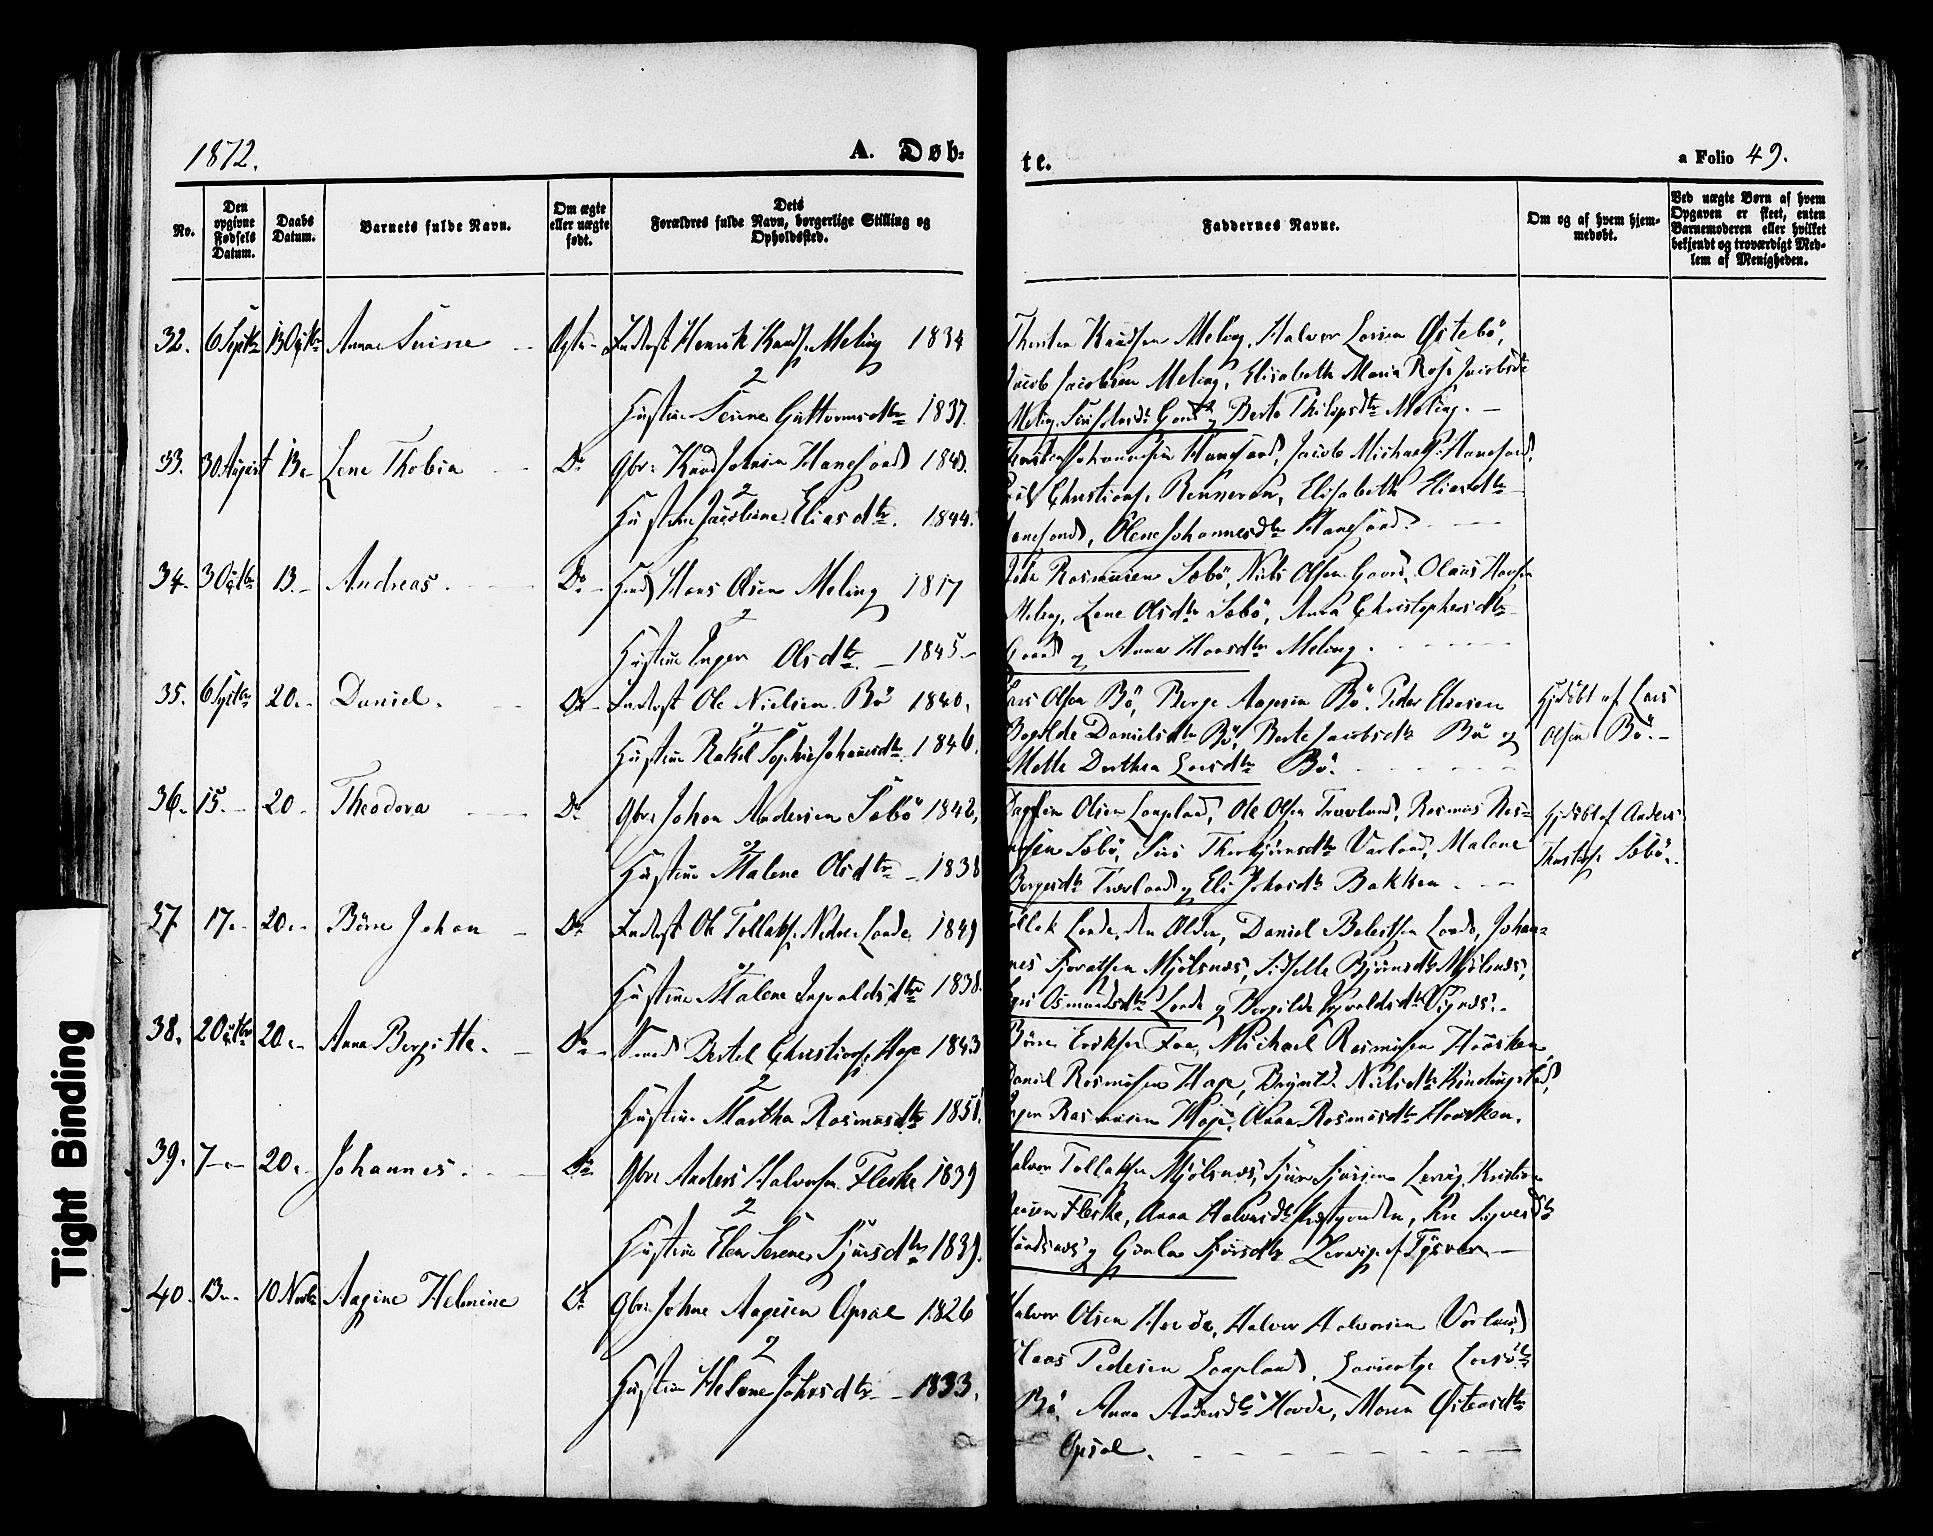 1872.
A. Døb-
te.
a Folio 49.
No.
Den opgivne Fødsels Datum.
Daabs Datum.
Barnets fulde Navn.
Om ægte eller uægte født.
Dets Forældres fulde Navn, borgerlige Stilling og Opholdssted.
Faddernes Navne.
Om og af hvem hjemmedøbt.
Ved uægte Børn af hvem Opgaven er skeet, enten Barnemoderen eller hvilket bekjendt og troværdigt Medlem af Menigheden.
32. 6 Septr 13 Octbr Anna Serine Ægte Inderst Henrik Knuds. Meling 1834
Hustru Serine Guttormsdtr 1837.
Knudsen Meling, Halvor Larsen Østebö,
Jacob Jacobsen Meling, Elisabeth Maria Jacobsdr
Meling, Gaard og Berte Philipsdtr Meling.
33. 30 August 13 Lene Thobia Do Gbr. Knud Johnsen Hanesand 1843.
Hustru Jacobine Eliasdtr. 1844.
Johannesen Hanesand, Jacob Michaels. Hanesand,
Christians. Renneren, Elisabeth Eliasdtr
Hanesand, Olene Johannesdtr Hanesand.
34. 3 Octbr 13. Andreas. Do Hans Olsen Meling 1817
Hustru Inger Olsdtr. 1845
John Rasmusen Sæbö, Niels Olsen Gaard, Olaus Hansen
Meling, Lene Olsdtr Sæbö, Anna Christophersdtr
Gaard og Anna Hansdtr Meling.
35. 6 Septbr 20. Daniel. Do Inderst Ole Nielsen Bö 1840.
Hustru Rakel Sophie Johannesdtr. 1846.
Lars Olsen Bö, Berge Aagesen Bö, Peder Eliesen
Danielsdtr Bö, Berte Jacobsdtr Bö og
Mette Dorthea Larsdtr Bö.
Hjdöbt af Lars
Olsen Bö.
36. 15. 20. Theodora Do Gbr. Johan Andersen Sæbö 1842,
Hustru Malene Olsdtr 1838
Olsen Laupland, Ole Olsen Travland, Rasmus Ras-
musen Sæbö, Siri Thorbjörnsdtr Varland, Malene
Bergesdtr Travland og Eli Johnsdtr Bakken
Hjdöbt af Anders
Sæbö.
37 17. 20. Börre Johan Do Inderst Ole Tollaks. Nedre Lande 1849
Hustru Malene Ingvaldsdtr 1838.
Tollak Lande, den Ældre, Daniel Lande, Johan-
nes Mjölsnes, Sidselle Björnsdtr Mjölsnes,
Osmundsdtr Lande og Ingvaldsdtr Vignes.
38. 2 Octbr 20. Anna Bergitte. Do Bertel Christians. Hage 1843
Hustru Martha Rasmusdtr 1851.
Börre Eriksen Foe, Michael Rasmusen Haasken,
Daniel Rasmusen Hage, Nielsdtr
Rasmusen Hage, Anna Rasmusdtr Haasken.
39. 7 20. Johannes. Do Gbr. Anders Halvorsen Fleske 1839
Hustru Elen Serene Sjursdtr 1839.
Halvor Tollaksen Mjölsnes, Sjur Sjursen Lervig,
Fleske, Anna Halvorsdtr
og Gunla Sjursdtr Lervig af Tysvær
40. 13. 10 Novbr Aagine Helmine Do Gbr. Johne Aagesen Opsal 1826
Hustru Helene Johnsdtr 1833.
Halvor Olsen Hovde, Halvor Halvorsen Vorland,
Claas Pedersen Laupland, Larsdtr
Bö, Anna Andersdtr Hovde, Maren Østensdtr
Opsal.
Tight Binding